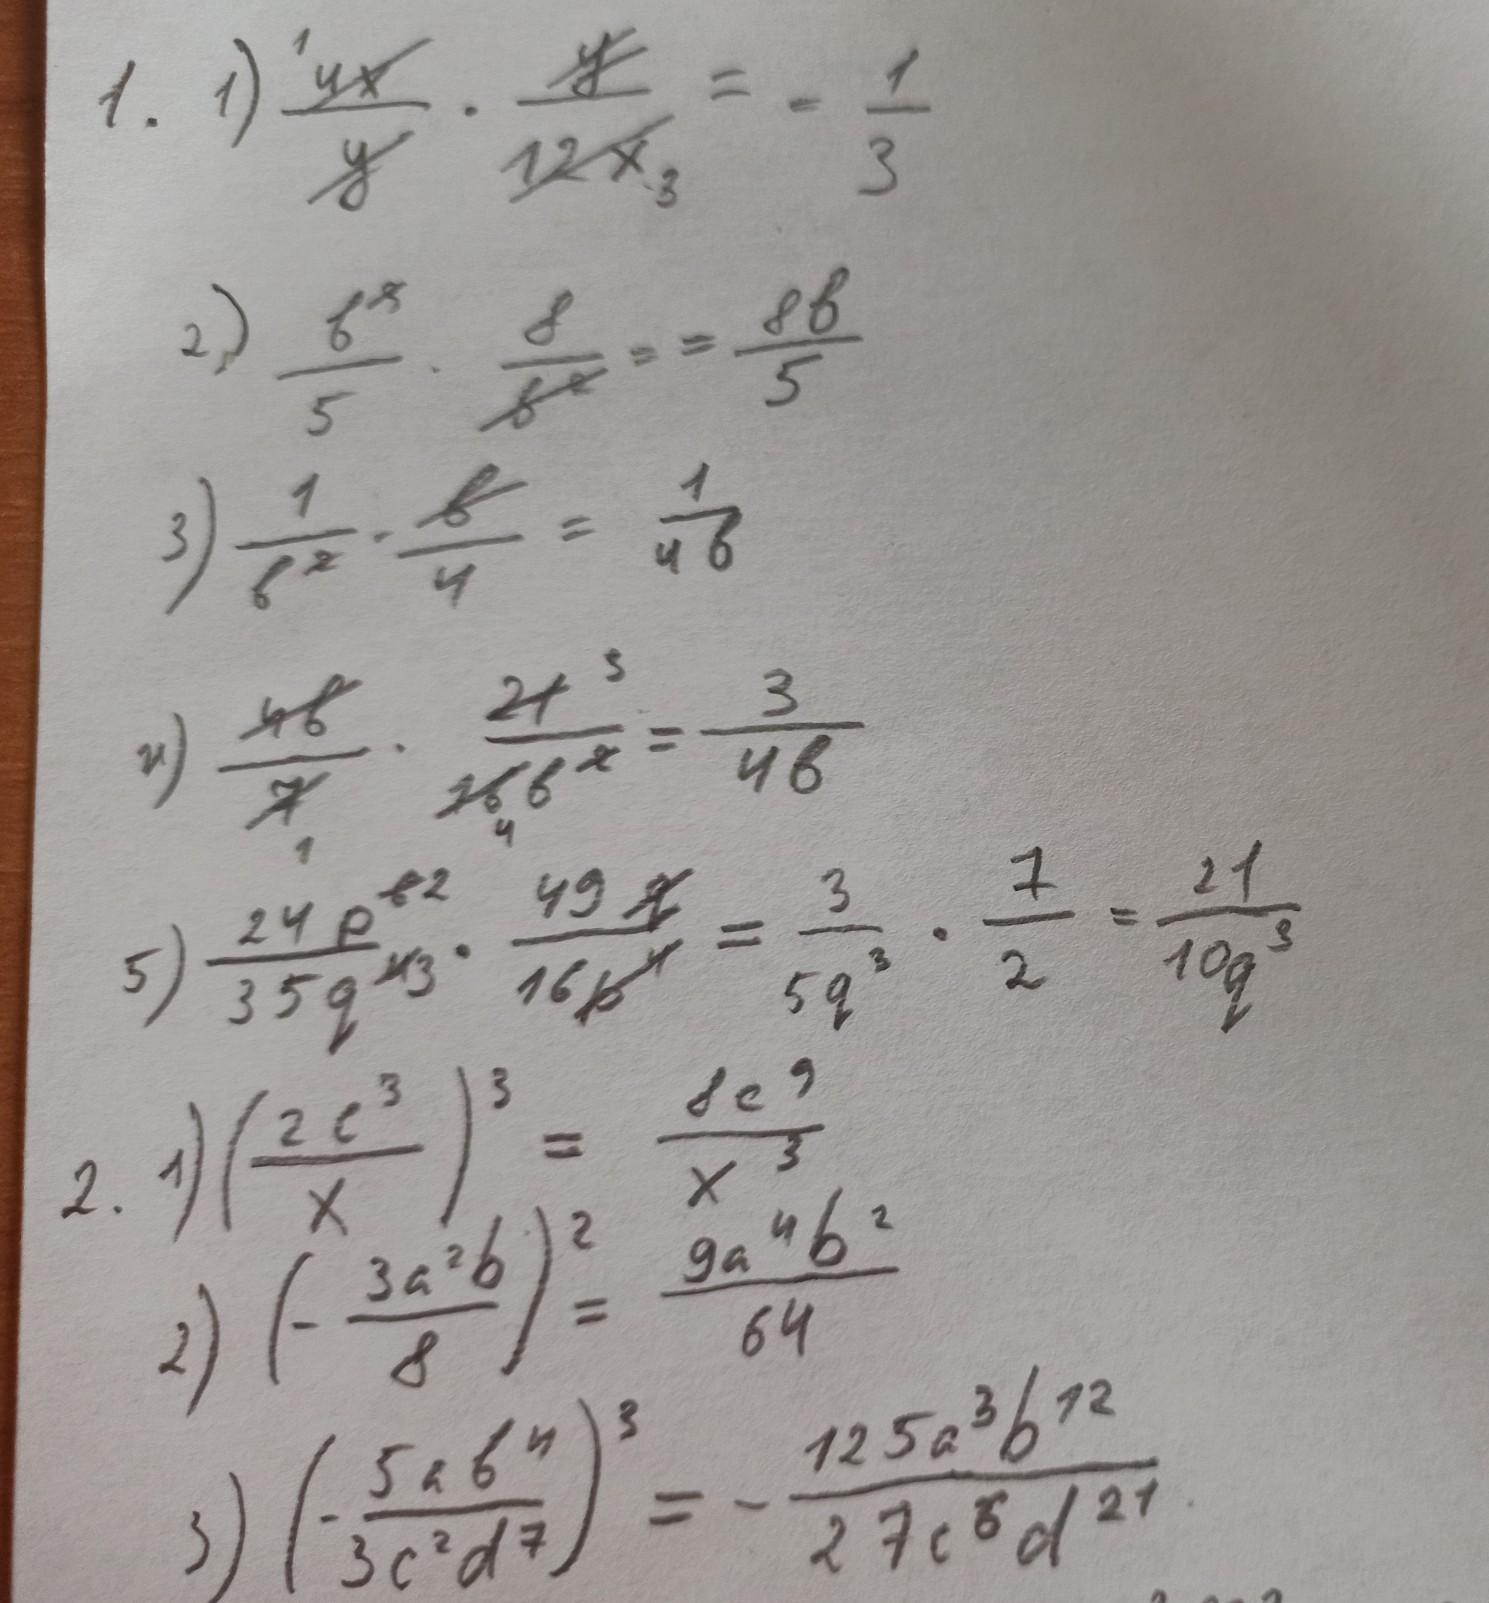 1. 1) 4x/y · y/12x 1 3 = - 1/3
2) b^2/5 · 8/b^2 = = 8b/5
3) 1/b^2 · b/4 = 1/4b
4) 4b/7 · 21/16b^2 1 3 4 = 3/4b
5) 24p^6 2/35q^4 3 · 49q/16p^4 = 3/5q^3 · 7/2 = 21/10q^3
2. 1) (2c^3/x)^3 = 8c^9/x^3
2) (- 3a^2b/8)^2 = 9a^4b^2/64
3) (- 5ab^4/3c^2d^7)^3 = - 125a^3b^12/27c^6d^21